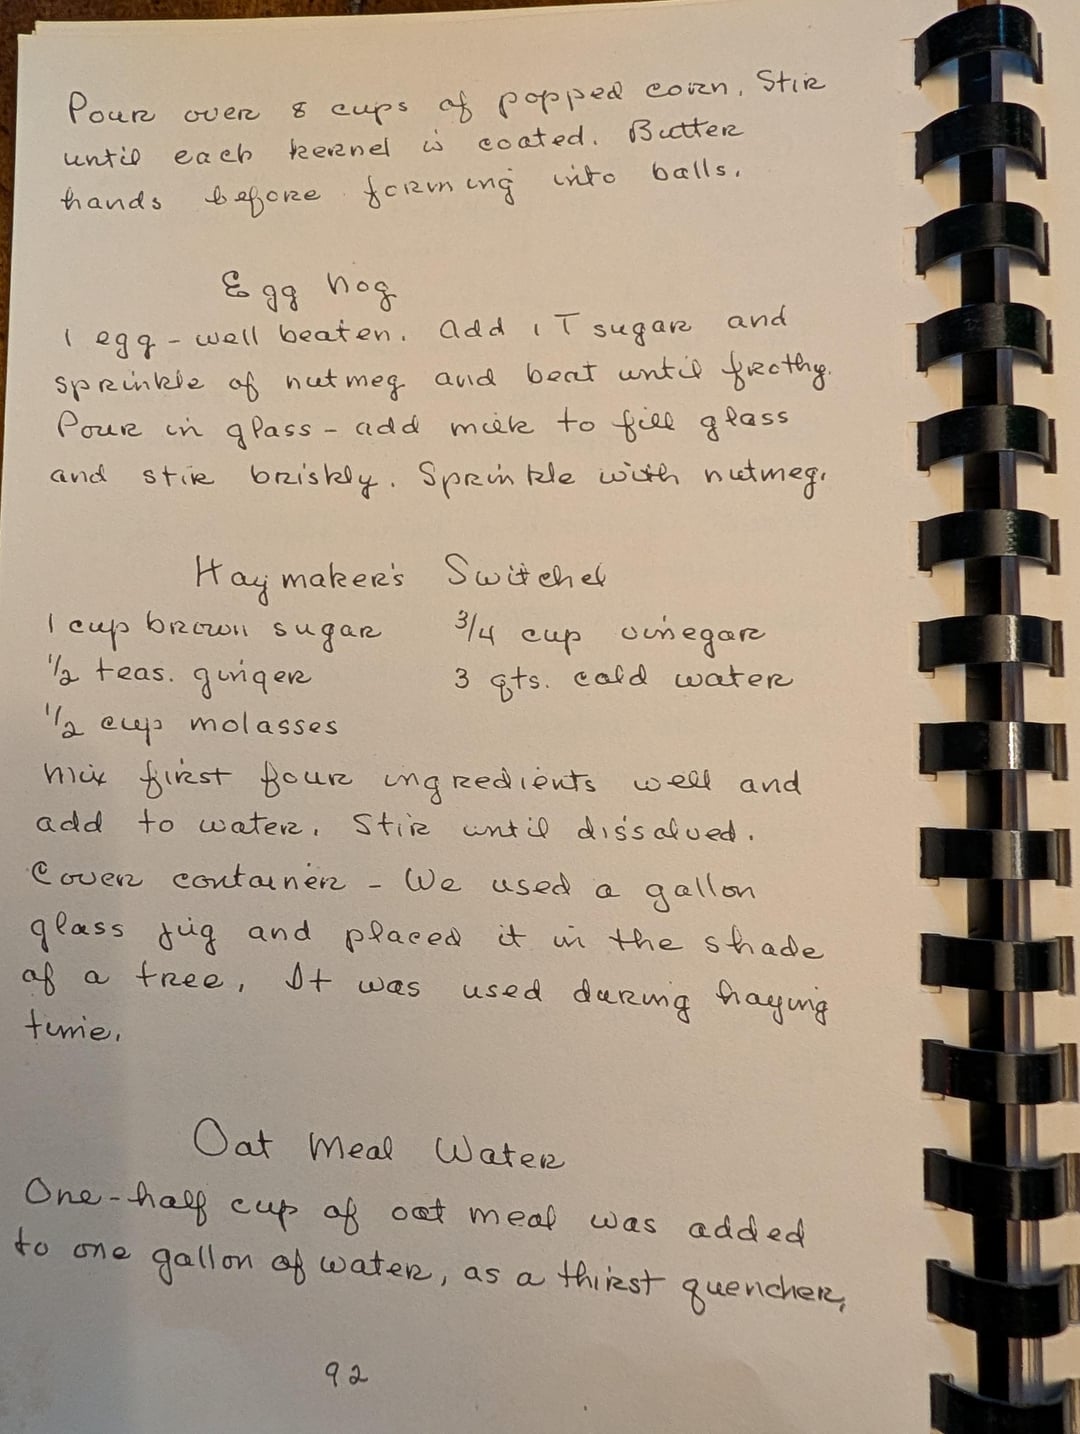 Pour over 8 cups of popped corn. Stir
until each kernel is coated. Butter
hands before forming into balls.
Egg Nog
1 egg - well beaten. Add 1 T sugar and
sprinkle of nutmeg and beat until frothy.
Pour in glass - add milk to fill glass
and stir briskly. Sprinkle with nutmeg.
Haymaker's Switchel
1 cup brown sugar 3/4 cup vinegar
1/2 teas. ginger 3 qts. cold water
1/2 cup molasses
Mix first four ingredients well and
add to water. Stir until dissolved.
Cover container - We used a gallon
glass jug and placed it in the shade
of a tree. It was used during haying
time.
Oat Meal Water
One-half cup of oat meal was added
to one gallon of water, as a thirst quencher.
92